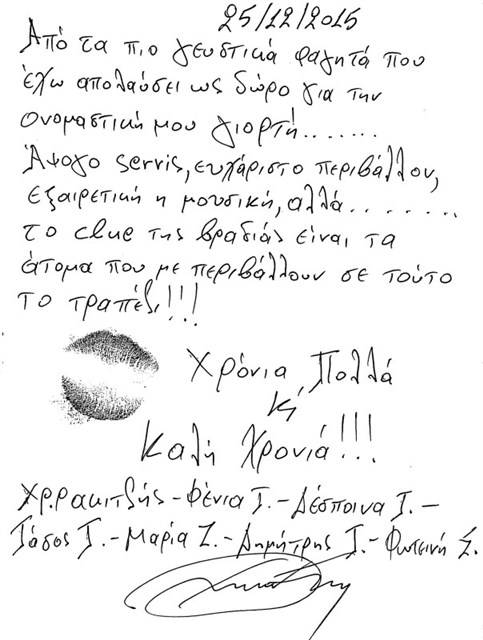 25/12/2015
Από τα πιο γευστικά φαγητά που
έχω απολαύσει ως δώρο για την
ονομαστική μου γιορτή.......
Άψογο servis, ευχάριστο περιβάλλον,
εξαιρετική η μουσική, αλλά........
το clue της βραδιάς είναι τα
άτομα που με περιβάλλουν σε τούτο
το τραπέζι!!!
Χρόνια Πολλά
Κι
Καλή Χρονιά!!!
Χρ. Ρακιτζής - Φένια Τ. - Δέσποινα Τ. -
Τάσος Τ. - Μαρία Ζ. - Δημήτρης Τ. - Φωτεινή Σ.